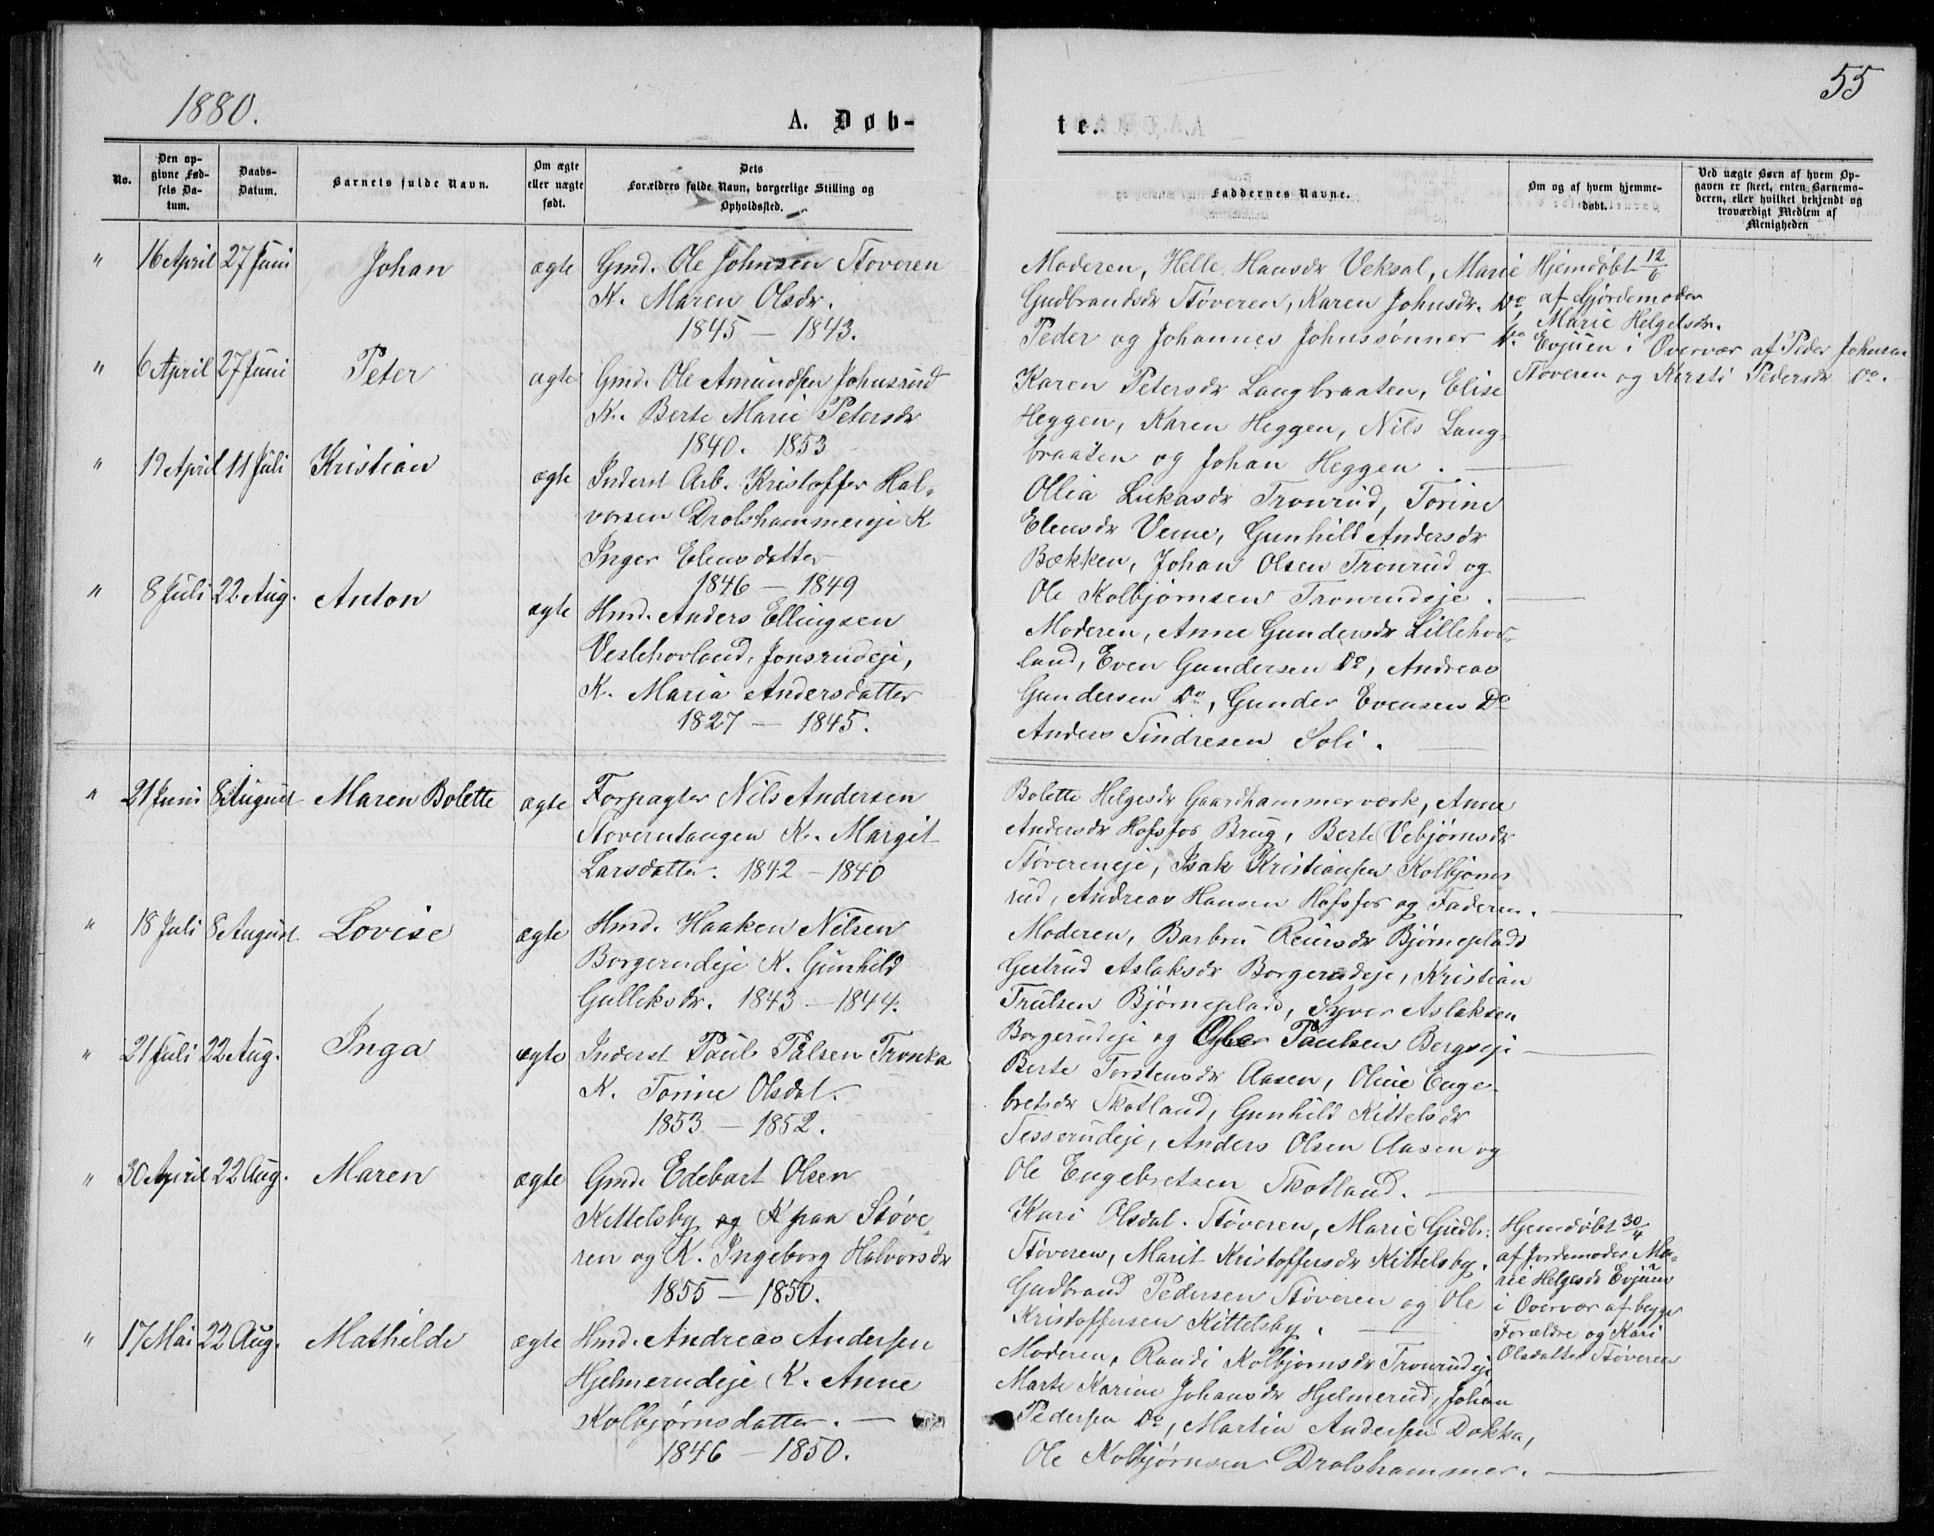 1880.
55
A. Døb-
te.
No.
Den op-
givne Fød-
sels Da-
tum.
Daabs-
Datum.
Barnets fulde Navn.
Om ægte
eller uægte
født.
Dets
Forældres fulde Navn, borgerlige Stilling og
Opholdssted.
Faddernes Navne.
Om og af hvem hjemme-
døbt.
Ved uægte Børn af hvem Op-
gaven er skeet, enten Barnemo-
deren, eller hvilket bekjendt og
troværdigt Medlem af
Menigheden
" 16 April 27 Juni Johan ægte Gmd. Ole Johnsen Støveren
K. Maren Olsdr.
1845 - 1843.
Moderen, Helle Hansdr Veksal, Marie
Gudbrandsdr Støveren, Karen Johnsdr. Do,
Peder og Johannes Johnssønner Do.
Hjemdøbt 12/6
af Gjordemoder
Marie Helgesdr.
Evjuen i Overvær af Peder Johnsen
Støveren og Kersti Pedersdr Do.
" 6 April 27 Juni Peter ægte Gmd. Ole Amundsen Johnsrud
K. Berte Marie Petersdr
1840. 1853
Karen Petersdr Langbraaten, Elise
Heggen, Karen Heggen, Nils Lang-
braaten og Johan Heggen.
" 19 April 11 Juli Kristian ægte Inderst Arb. Kristoffer Hal-
vorsen Drolshammereje K
Inger Elensdatter
1846 - 1849
Ollia Lukasdr Tronrud, Torine
Elensdr Veme, Gunhild Andersdr
Bækken, Johan Olsen Tronrud og
Ole Kolbjørnsen Tronrudeje.
" 8 Juli 22 Aug. Anton ægte Hmd. Anders Ellingsen
Veslehovland, Jonsrudeje,
K. Maria Andersdatter
1827 - 1845.
Moderen, Anne Gundersdr Lillehov-
land, Even Gundersen Do, Andreas
Gundersen Do, Gunder Evensen Do
Anders Sindresen Soli.
" 21 Juni 8 August Maren Bolette ægte Forpagter Nils Andersen
Støverntangen K. Margit
Larsdatter. 1842 - 1840
Bolette Helgesdr Gaardhammerværk, Anne
Andersdr Hofsfos Brug, Berte Vebjørnsdr
Støvereneje, Isak Kristiansen Kolbjørns
rud, Andreas Hansen Hofsfos og Faderen.
" 18 Juli 8 August Lovise ægte Hmd. Haaken Nilsen
Borgerudeje K. Gunhild
Gulleksdr. 1843 - 1844.
Moderen, Barbru Reiersdr Bjørneplads
Gertrud Aslaksdr Borgerudeje, Kristian
Trulsen Bjørneplads, Syver Aslaksen
Borgerudeje og Paulsen Bergseje
" 21 Juli 22 Aug. Inga ægte Inderst Paul Pålsen Tronka
K. Torine Olsdat.
1853 - 1852.
Berte Torstensdr Aasen, Oline Enge-
bretsdr Skotland, Gunhild Kittelsdr
Tesserudeje, Anders Olsen Aasen og
Ole Engebretsen Skotland.
" 30 April 22 Aug. Maren ægte Gmd. Edebart Olsen
Kittelsby og K paa Støve-
ren og K. Ingeborg Halvorsdr
1855 - 1850.
Kari Olsdat. Støveren, Marie Gudbr:
Støveren, Marit Kristoffersdr Kittelsby.
Gudbrand Pedersen Støveren og Ole
Kristoffersen Kittelsby.
Hjemdøbt 30/4
af Jordemoder Ma-
rie Helgesdr Evjuen
i Overvær af begge
Forældre og Kari
Olsdatter Støveren
" 17 Mai 22 Aug. Mathilde ægte Hmd. Andreas Andersen
Hjelmerudeje K. Anne
Kolbjørnsdatter.
1846 - 1850.
Moderen, Randi Kolbjørnsdr Tronrudeje
Marte Karine Johansdr Hjelmerud, Johan
Pedersen Do, Martin Andersen Dokka,
Ole Kolbjørnsen Drolshammer.